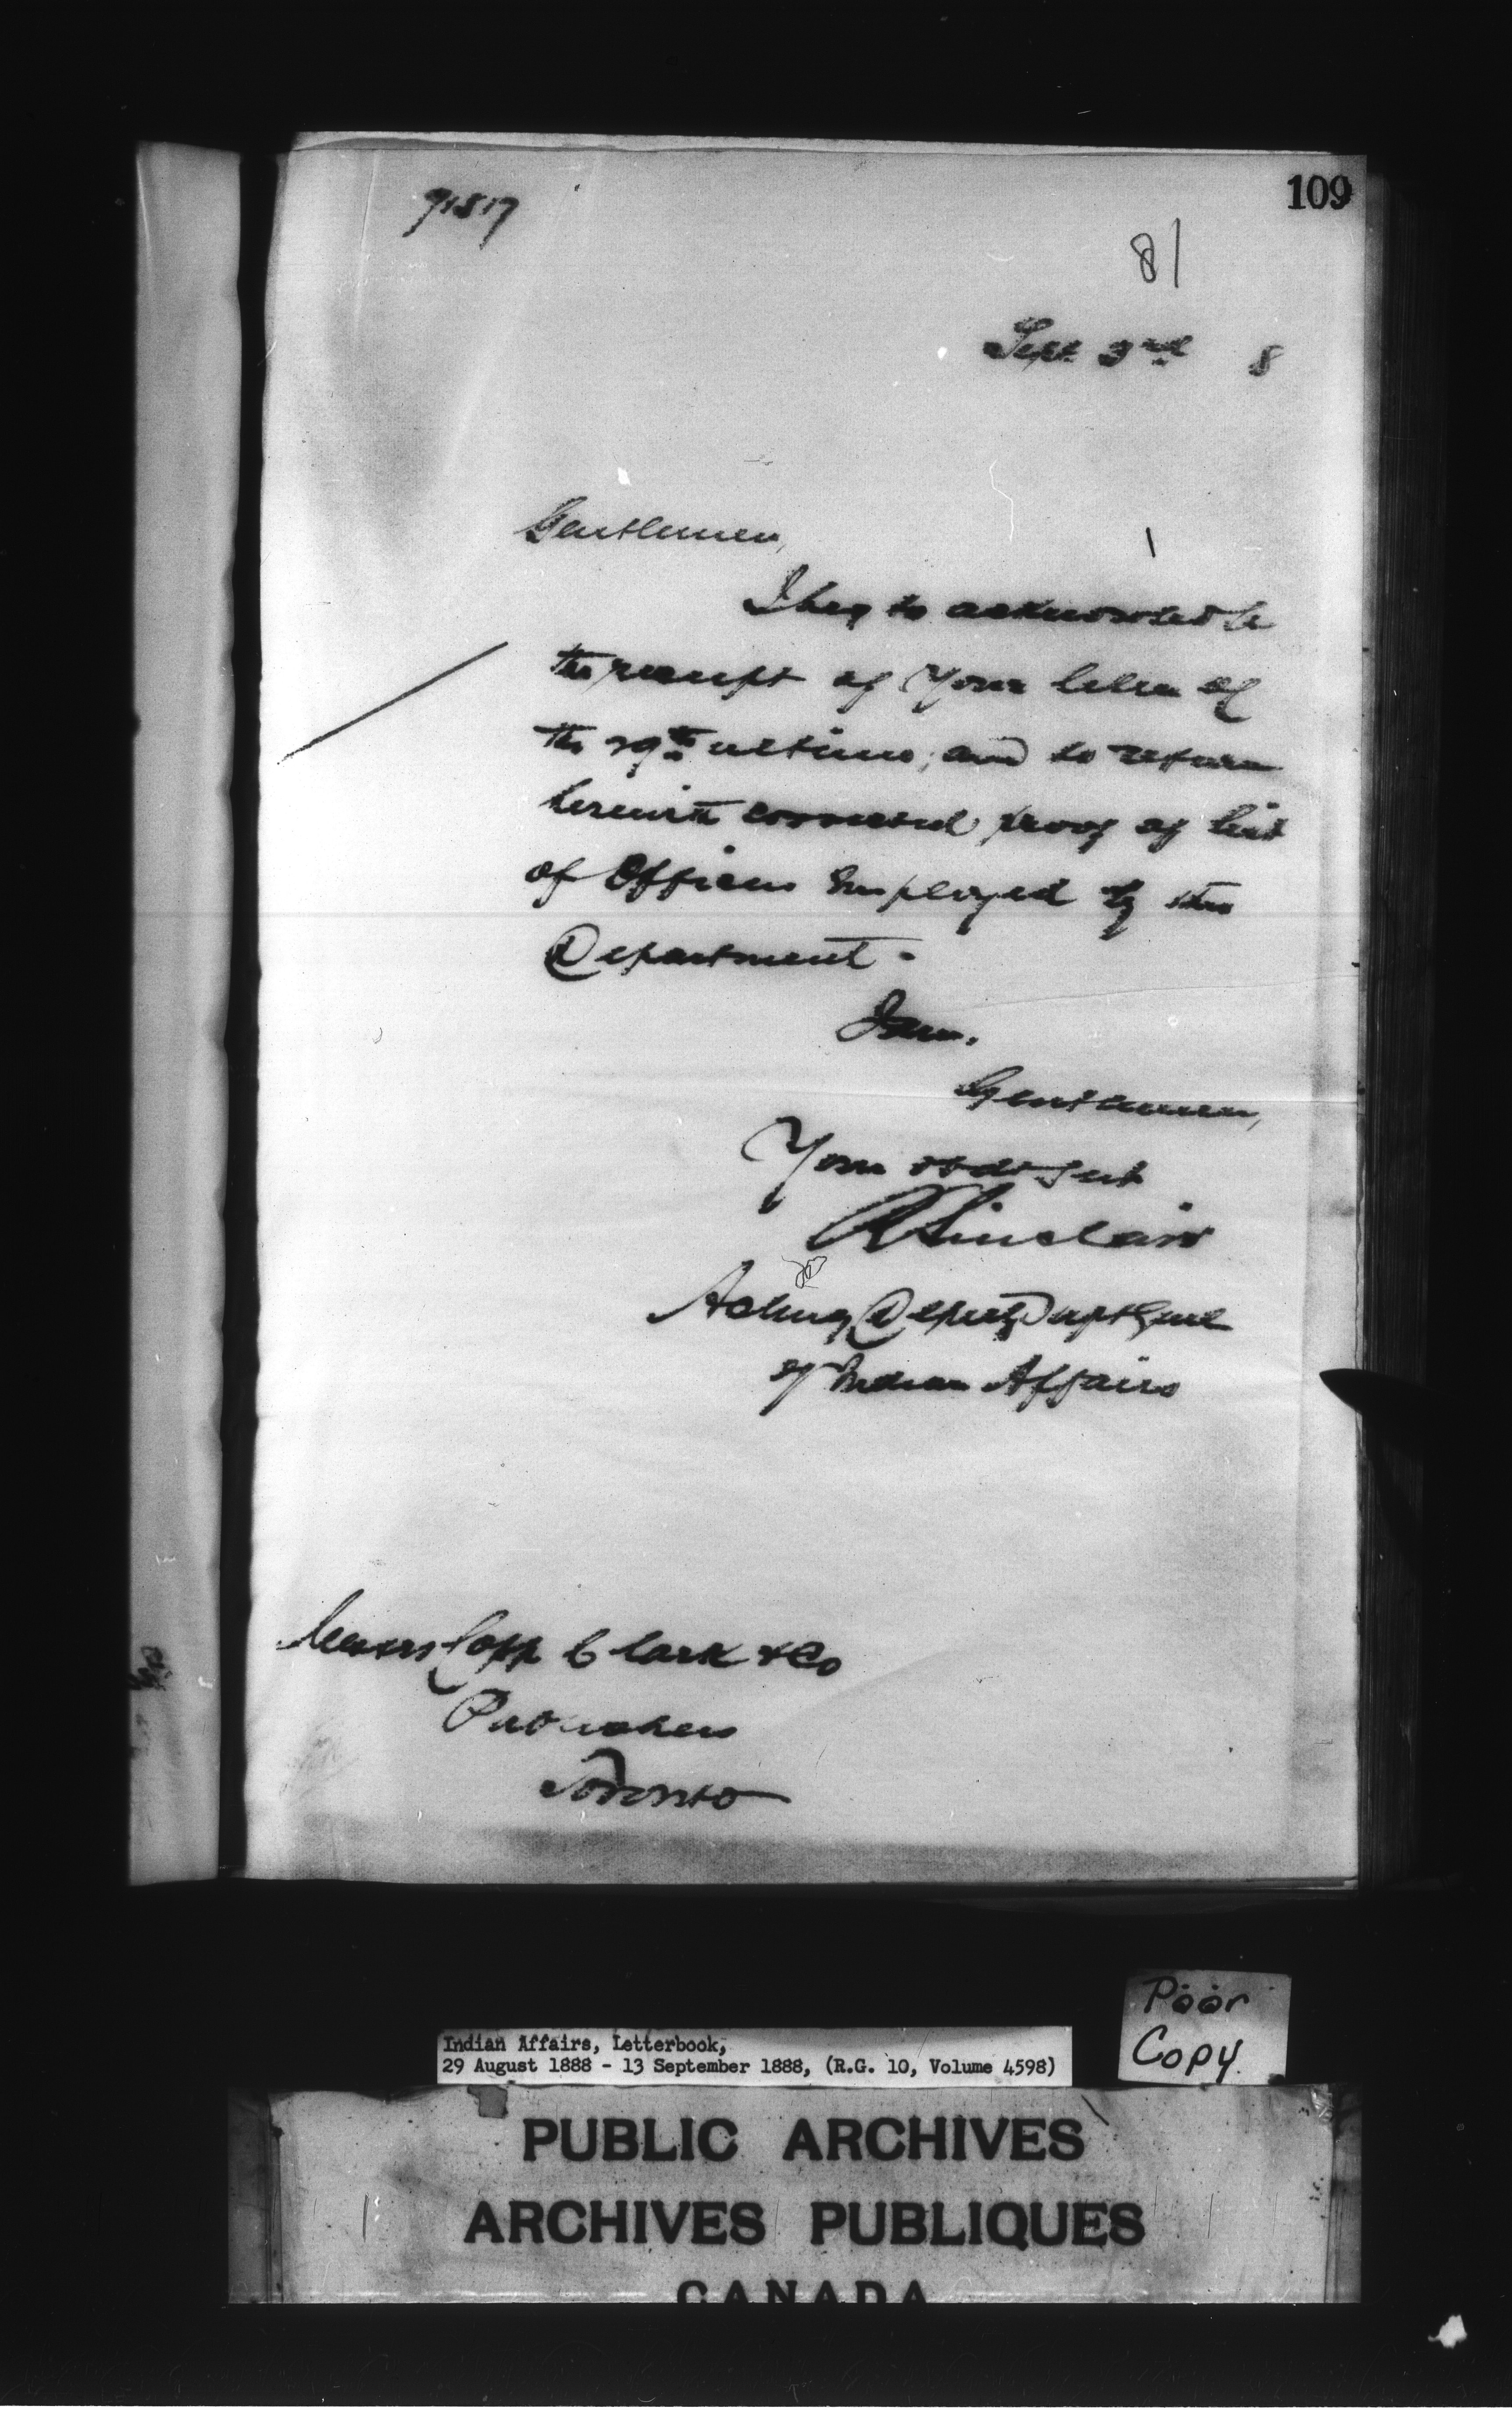 109
91517
81
Sept 3rd 8
Gentlemen,
I beg to acknowledge
the receipt of Your letter of
the 29th ultimo, and to return
herewith corrected proof of list
of Officers Employed by this
Department.
I am,
Gentlemen,
Your obdt Sert
R Sinclair
Acting Deputy Supt Genl
of Indian Affairs
Messrs Copp Clark & Co
Publishers
Toronto
Poor
Copy.
Indian Affairs, Letterbook,
29 August 1888 - 13 September 1888, (R.G. 10, Volume 4598)
PUBLIC ARCHIVES
ARCHIVES PUBLIQUES
CANADA